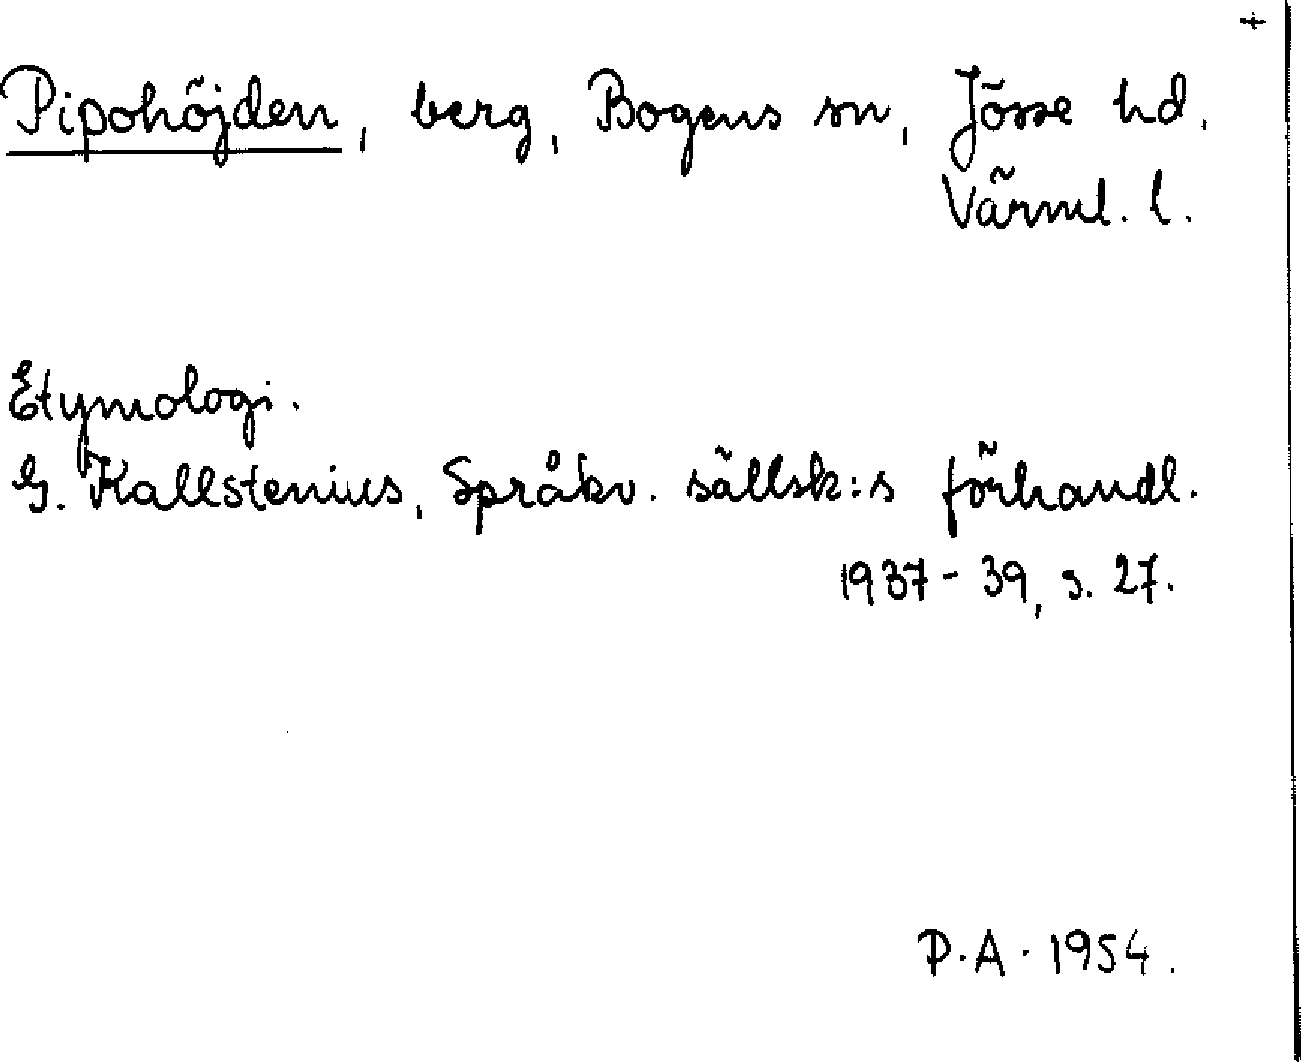 +
Pipohöjden, berg, Bogens sn, Jösse hd,
Värml. l.
Etymologi.
G. Kallstenius, Språkv. sällsk:s förhandl.
1937-39, s. 27.
P.A. 1954.